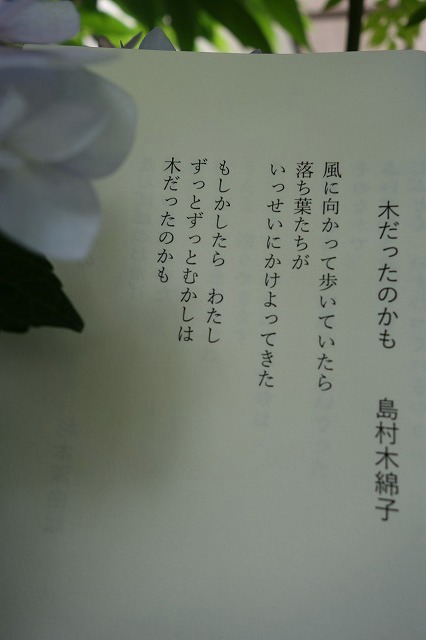 木だったのかも　島村木綿子
風に向かって歩いていたら
落ち葉たちが
いっせいにかけよってきた
もしかしたら　わたし
ずっとずっとむかしは
木だったのかも